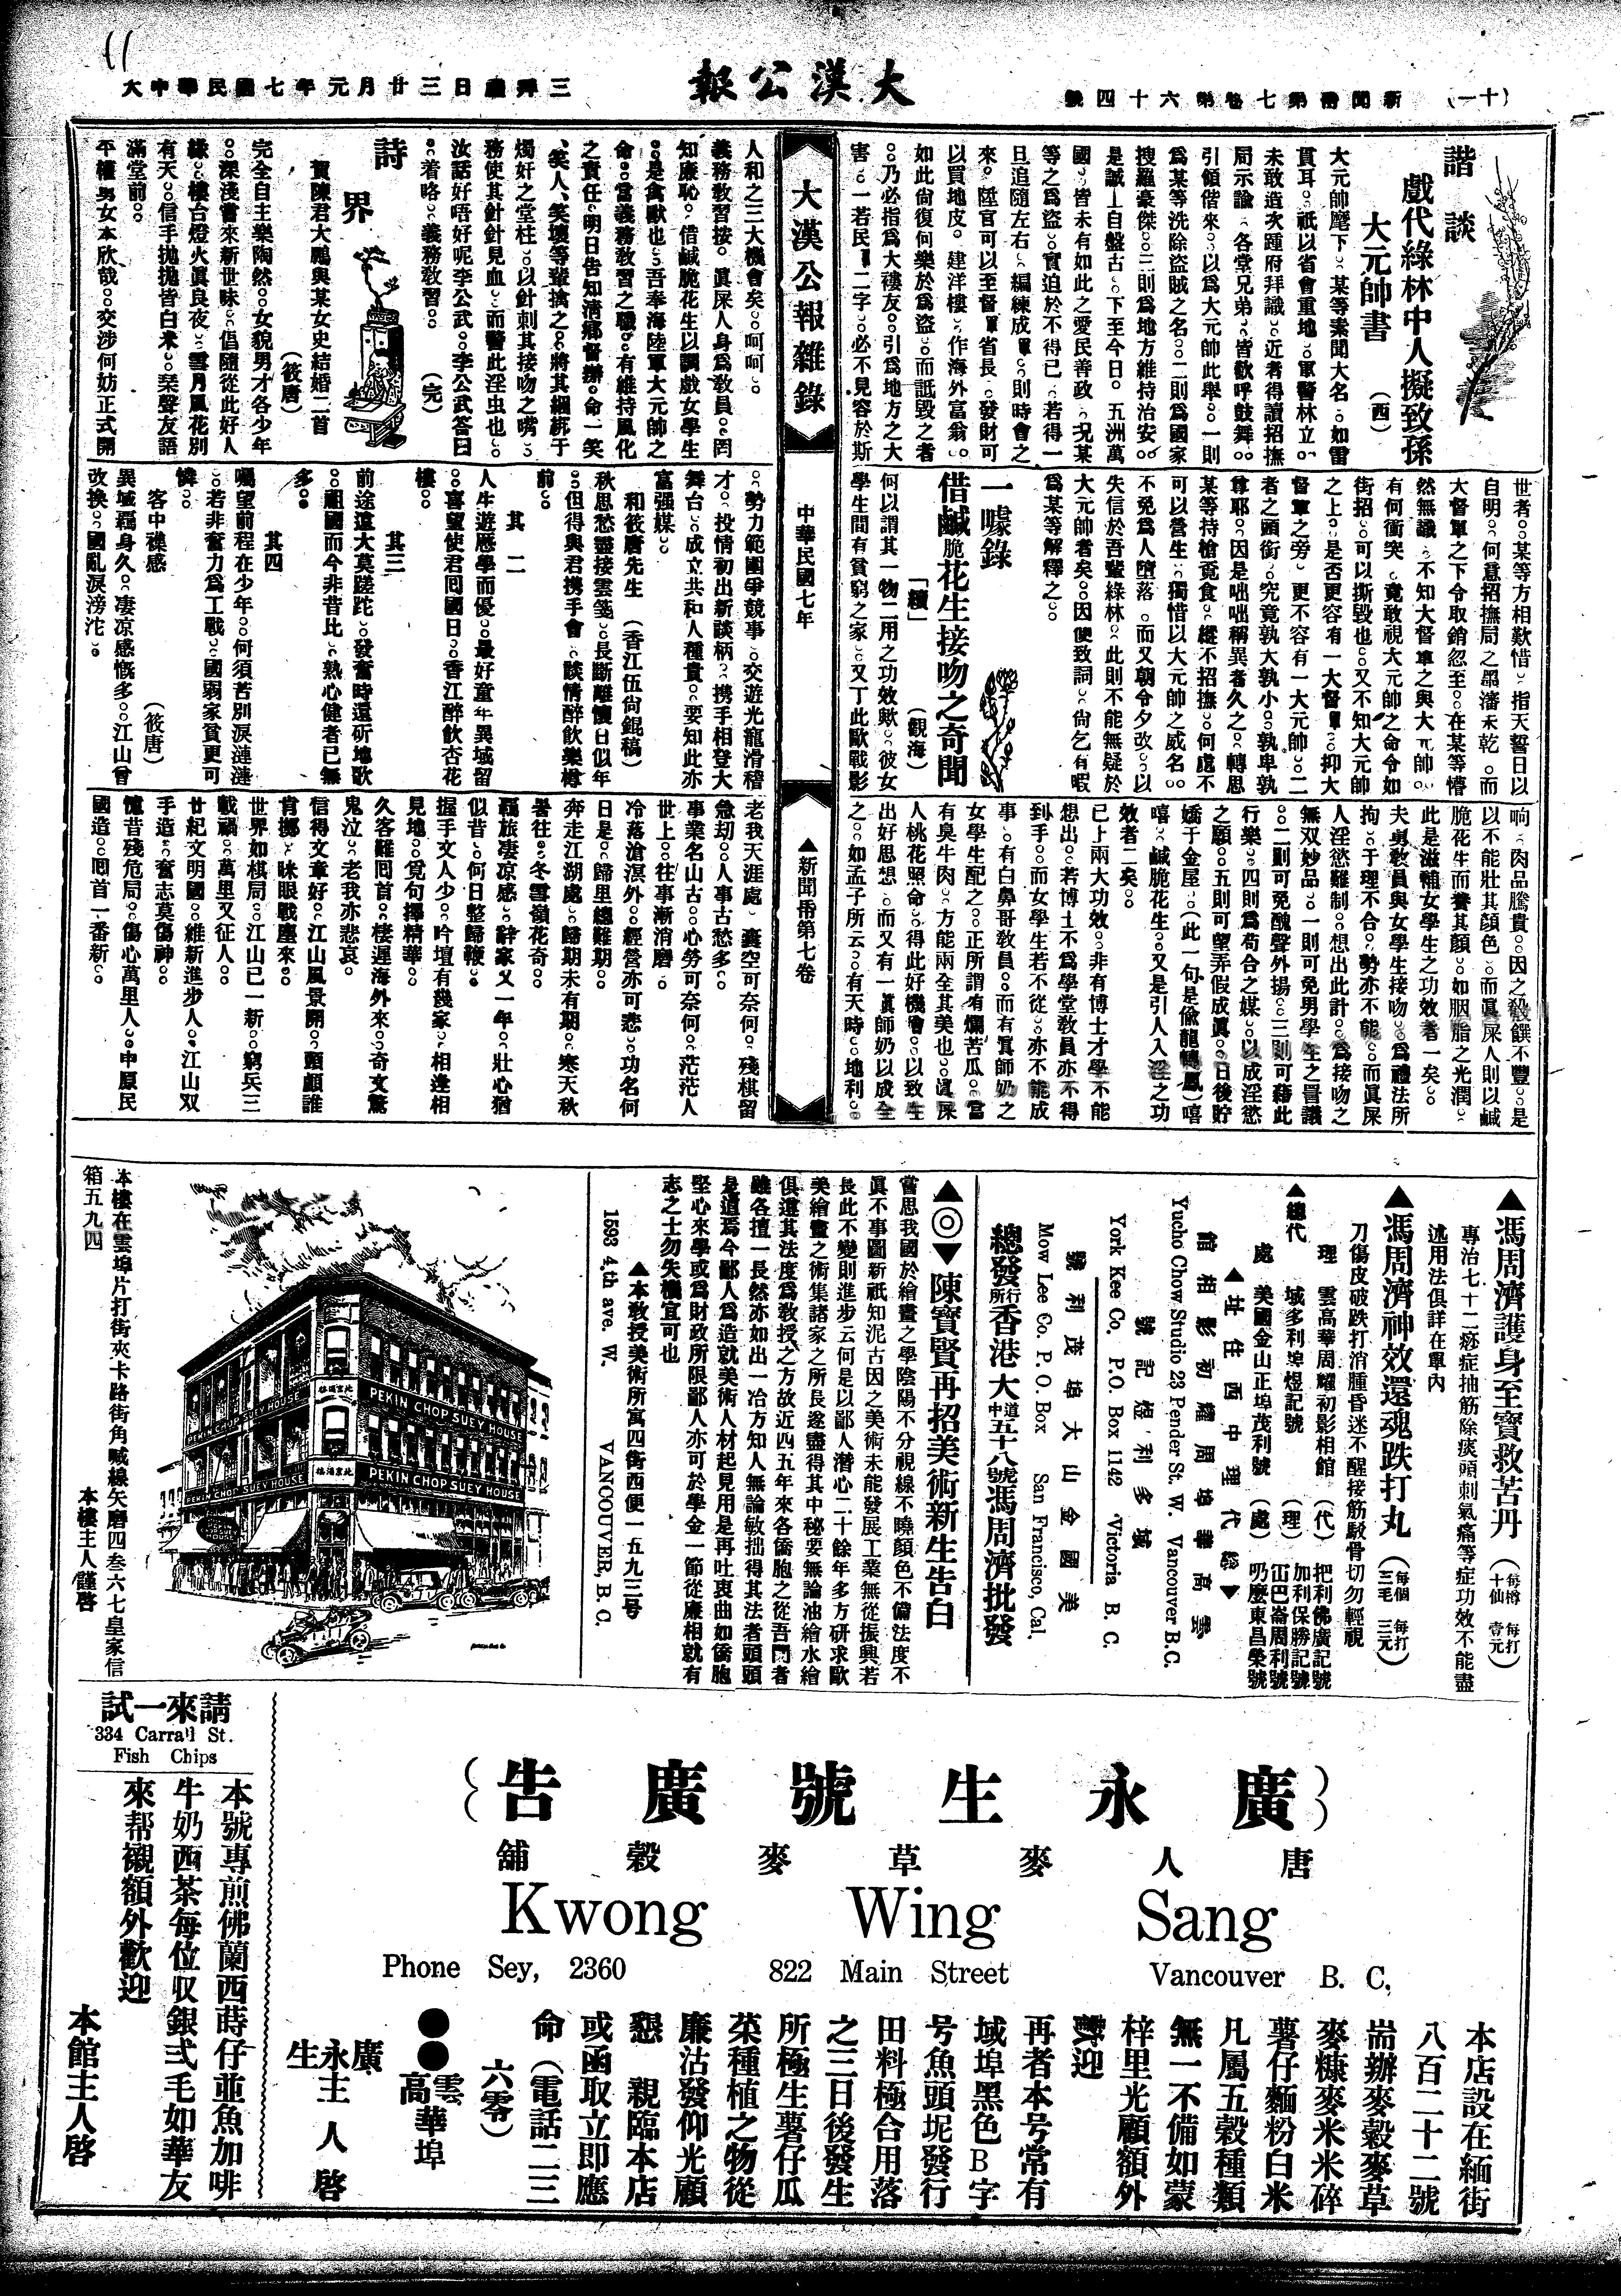 11
(十一) 新聞冊第七卷第六十四號
大漢公報
大中華民國七年元月廿三日禮拜三
諧談
戲代綠林中人擬致孫
大元帥書 (西)
大元帥麾下、某等素聞大名、如雷
貫耳、祇以省會重地、軍警林立、
未敢造次踵府拜識、近者得讀招撫
局示諭、各堂兄弟、皆歡呼鼓舞、
引領偕來、以為大元帥此舉、一則
為某等洗除盜賊之名、二則為國家
搜羅豪傑、三則為地方維持治安、
是誠上自盤古、下至今日。五洲萬
國、皆未有如此之愛民善政、况某
等之為盜、實迫於不得已、若得一
旦追隨左右、編練成軍、則時會之
來。陞官可以至督軍省長。發財可
以買地皮。建洋樓、作海外富翁、
如此尙復何樂於為盜、而詆毀之者
、乃必指為大褸友、引為地方之大
害、一若民軍二字、必不見容於斯
世者、某等方相歎惜、指天誓日以
自明、何意招撫局之墨瀋未乾。而
大督軍之下令取銷忽至、在某等懵
然無識、不知大督軍之與大元帥、
有何衝突、竟敢視大元帥之命令如
街招、可以撕毀也、又不知大元帥
之上、是否更容有一大督軍、抑大
督軍之旁、更不容有一大元帥、二
者之頭銜、究竟孰大孰小、孰卑孰
尊耶、因是咄咄稱異者久之、轉思
某等持槍覓食、縱不招撫、何處不
可以營生、獨惜以大元帥之威名、
不免為人墮落。而又朝令夕改、以
失信於吾輩綠林、此則不能無疑於
大元帥者矣、因便致詞、尙乞有暇
為某等解釋之、
一噱錄
借鹹脆花生接吻之奇聞
「續」 (觀海)
何以謂其一物二用之功效歟、彼女
學生間有貧窮之家、又丁此歐戰影
响、肉品騰貴、因之殽饌不豐、是
以不能壯其顏色、而眞屎人則以鹹
脆花生而養其顏、如胭脂之光潤、
此是滋補女學生之功效者一矣、
夫男敎員與女學生接吻、為禮法所
拘、于理不合、勢亦不能、而眞屎
人淫慾難制、想出此計、為接吻之
無双妙品、一則可免男學生之詈議
、二則可免醜聲外揚、三則可藉此
行樂、四則為苟合之媒、以成淫慾
之願、五則可望弄假成眞、日後貯
嬌于金屋、(此一句是偷龍轉鳳)嘻
嘻、鹹脆花生、又是引人入淫之功
效者二矣、
已上兩大功效、非有博士才學不能
想出、若博士不為學堂敎員亦不得
到手、而女學生若不從、亦不能成
事、有白鼻哥敎員、而有眞師奶之
女學生配之、正所謂有爛苦瓜、當
有臭牛肉、方能兩全其美也、眞屎
人桃花照命、得此好機會、以致生
出好思想、而又有一眞師奶以成全
之、如孟子所云、有天時、地利、
人和之三大機會矣、呵呵、
義務敎習按。眞屎人身為敎員、罔
知廉恥、借鹹脆花生以調戲女學生
、是禽獸也、吾奉海陸軍大元帥之
命、當義務敎習之職、有維持風化
之責任、明日告知淸鄉督辦、命一笑
、笑人、笑壞等輩擒之、將其綑綁于
燭奸之堂柱、以針刺其接吻之嘴、
務使其針針見血、而警此淫虫也、
汝話好唔好呢李公武、李公武答曰
、着略、義務敎習、 (完)
大漢公報雜錄
中華民國七年
▲新聞冊第七卷
詩界
賀陳君大鵬與某女史結婚二首
(筱唐)
完全自主樂陶然、女貌男才各少年
、深淺嘗來新世味、倡隨從此好人
緣、樓台燈火眞良夜、雪月風花別
有天、信手拋拋皆白米、琹聲友語
滿堂前、
平權男女本欣哉、交涉何妨正式開
、勢力範圍爭競事、交遊光龍滑稽
才、投情初出新談柄、携手相登大
舞台、成立共和人種貴、要知此亦
富强媒、
和筱唐先生 (香江伍尙錕稿)
秋思愁靈接雲箋、長斷離懷日似年
、但得與君携手會、談情醉飲樂樽
前、
其二
人生遊歷學而優、最好童年異域留
、喜望使君囘國日、香江醉飲杏花
樓、
其三
前途遠大莫蹉跎、發奮時還斫地歌
、祖國而今非昔比、熱心健者已無
多、
其四
囑望前程在少年、何須苦別淚漣漣
、若非奮力為工戰、國弱家貧更可
憐、
客中襍感 (筱唐)
異域羈身久、凄凉感慨多、江山曾
改換、國亂淚滂沱、
老我天涯處、囊空可奈何、殘棋留
急刧、人事古愁多、
事業名山古、心勞可奈何、茫茫人
世上、往事漸消磨、
冷落滄溟外、經營亦可悲、功名何
日是、歸里總難期、
奔走江湖處、歸期未有期、寒天秋
暑往、冬雪嶺花奇、
羈旅凄凉感、辭家又一年、壯心猶
似昔、何日整歸鞭、
握手文人少、吟壇有幾家、相逢相
見地、覓句擇精華、
久客難囘首、棲遲海外來、奇文驚
鬼泣、老我亦悲哀、
信得文章好、江山風景開、頭顱誰
肯擲、昧眼戰塵來、
世界如棋局、江山已一新、窮兵三
載禍、萬里又征人、
廿紀文明國、維新進步人、江山双
手造、奮志莫傷神、
憶昔殘危局、傷心萬里人、中原民
國造、囘首一番新、
▲馮周濟護身至寶救苦丹 (每樽十仙 每打壹元)
專治七十二痧症抽筋除痰頭刺氣痛等症功效不能盡
述用法俱詳在單內
▲馮周濟神效還魂跌打丸 (每個三毛 每打三元)
刀傷皮破跌打消腫昏迷不醒接筋駁骨切勿輕視
▲總代理處
雲高華周耀初影相館 (代)
域多利埠煜記號 (理)
美國金山正埠茂利號 (處)
把利佛廣記號
加利保勝記號
冚巴崙周利號
叨麼東昌榮號
▲總代理中西住址▼
雲高華埠周耀初影相館
Yucho Chow Studio 23 Pender St. W. Vancouver B.C.
域多利煜記號
York Kee Co. P.O. Box 1142 Victoria B. C.
美國金山大埠茂利號
Mow Lee Co. P. O. Box San Francisco, Cal.
總發行所香港大道中五十八號馮周濟批發
▲◎▼陳寶賢再招美術新生告白
嘗思我國於繪畫之學陰陽不分視線不曉顏色不備法度不
眞不事圖新祇知泥古因之美術未能發展工業無從振興若
長此不變則進步云何是以鄙人潛心二十餘年多方研求歐
美繪畫之術集諸家之所長遂盡得其中秘要無論油繪水繪
俱還其法度為敎授之方故近四五年來各僑胞之從吾門者
雖各擅一長然亦如出一冶方知人無論敏拙得其法者頭頭
是道焉今鄙人為造就美術人材起見用是再吐衷曲如僑胞
堅心來學或為財政所限鄙人亦可於學金一節從廉相就有
志之士勿失機宜可也
▲本敎授美術所寓四街西便一五九三号
1593 4.th ave. W. VANCOUVER, B. C.
北京酒樓
PEKIN CHOP SUEY HOUSE
PEKIN CHOP SUEY HOUSE
北京酒樓
PEKIN CHOP SUEY HOUSE
PEKIN CHOP SUEY HOUSE
本樓在雲埠片打街夾卡路街角喊線矢磨四叁六七皇家信
箱五九四
本樓主人謹啓
(廣永生號廣告)
唐人麥草麥穀舖
Kwong Wing Sang
Phone Sey, 2360 822 Main Street Vancouver B. C.
本店設在緬街
八百二十二號
耑辦麥穀麥草
麥糠麥米米碎
薯仔麵粉白米
凡屬五穀種類
無一不備如蒙
梓里光顧額外
歡迎
再者本号常有
域埠黑色B字
号魚頭坭發行
田料極合用落
之三日後發生
所極生薯仔瓜
菜種植之物從
廉沽發仰光顧
懇 親臨本店
或函取立即應
命(電話二三
六零)
●●雲高華埠
廣永生主人啓
請來一試
334 Carrall St.
Fish Chips
本號專煎佛蘭西蒔仔並魚加啡
牛奶西茶每位収銀弍毛如華友
來帮襯額外歡迎
本館主人啓